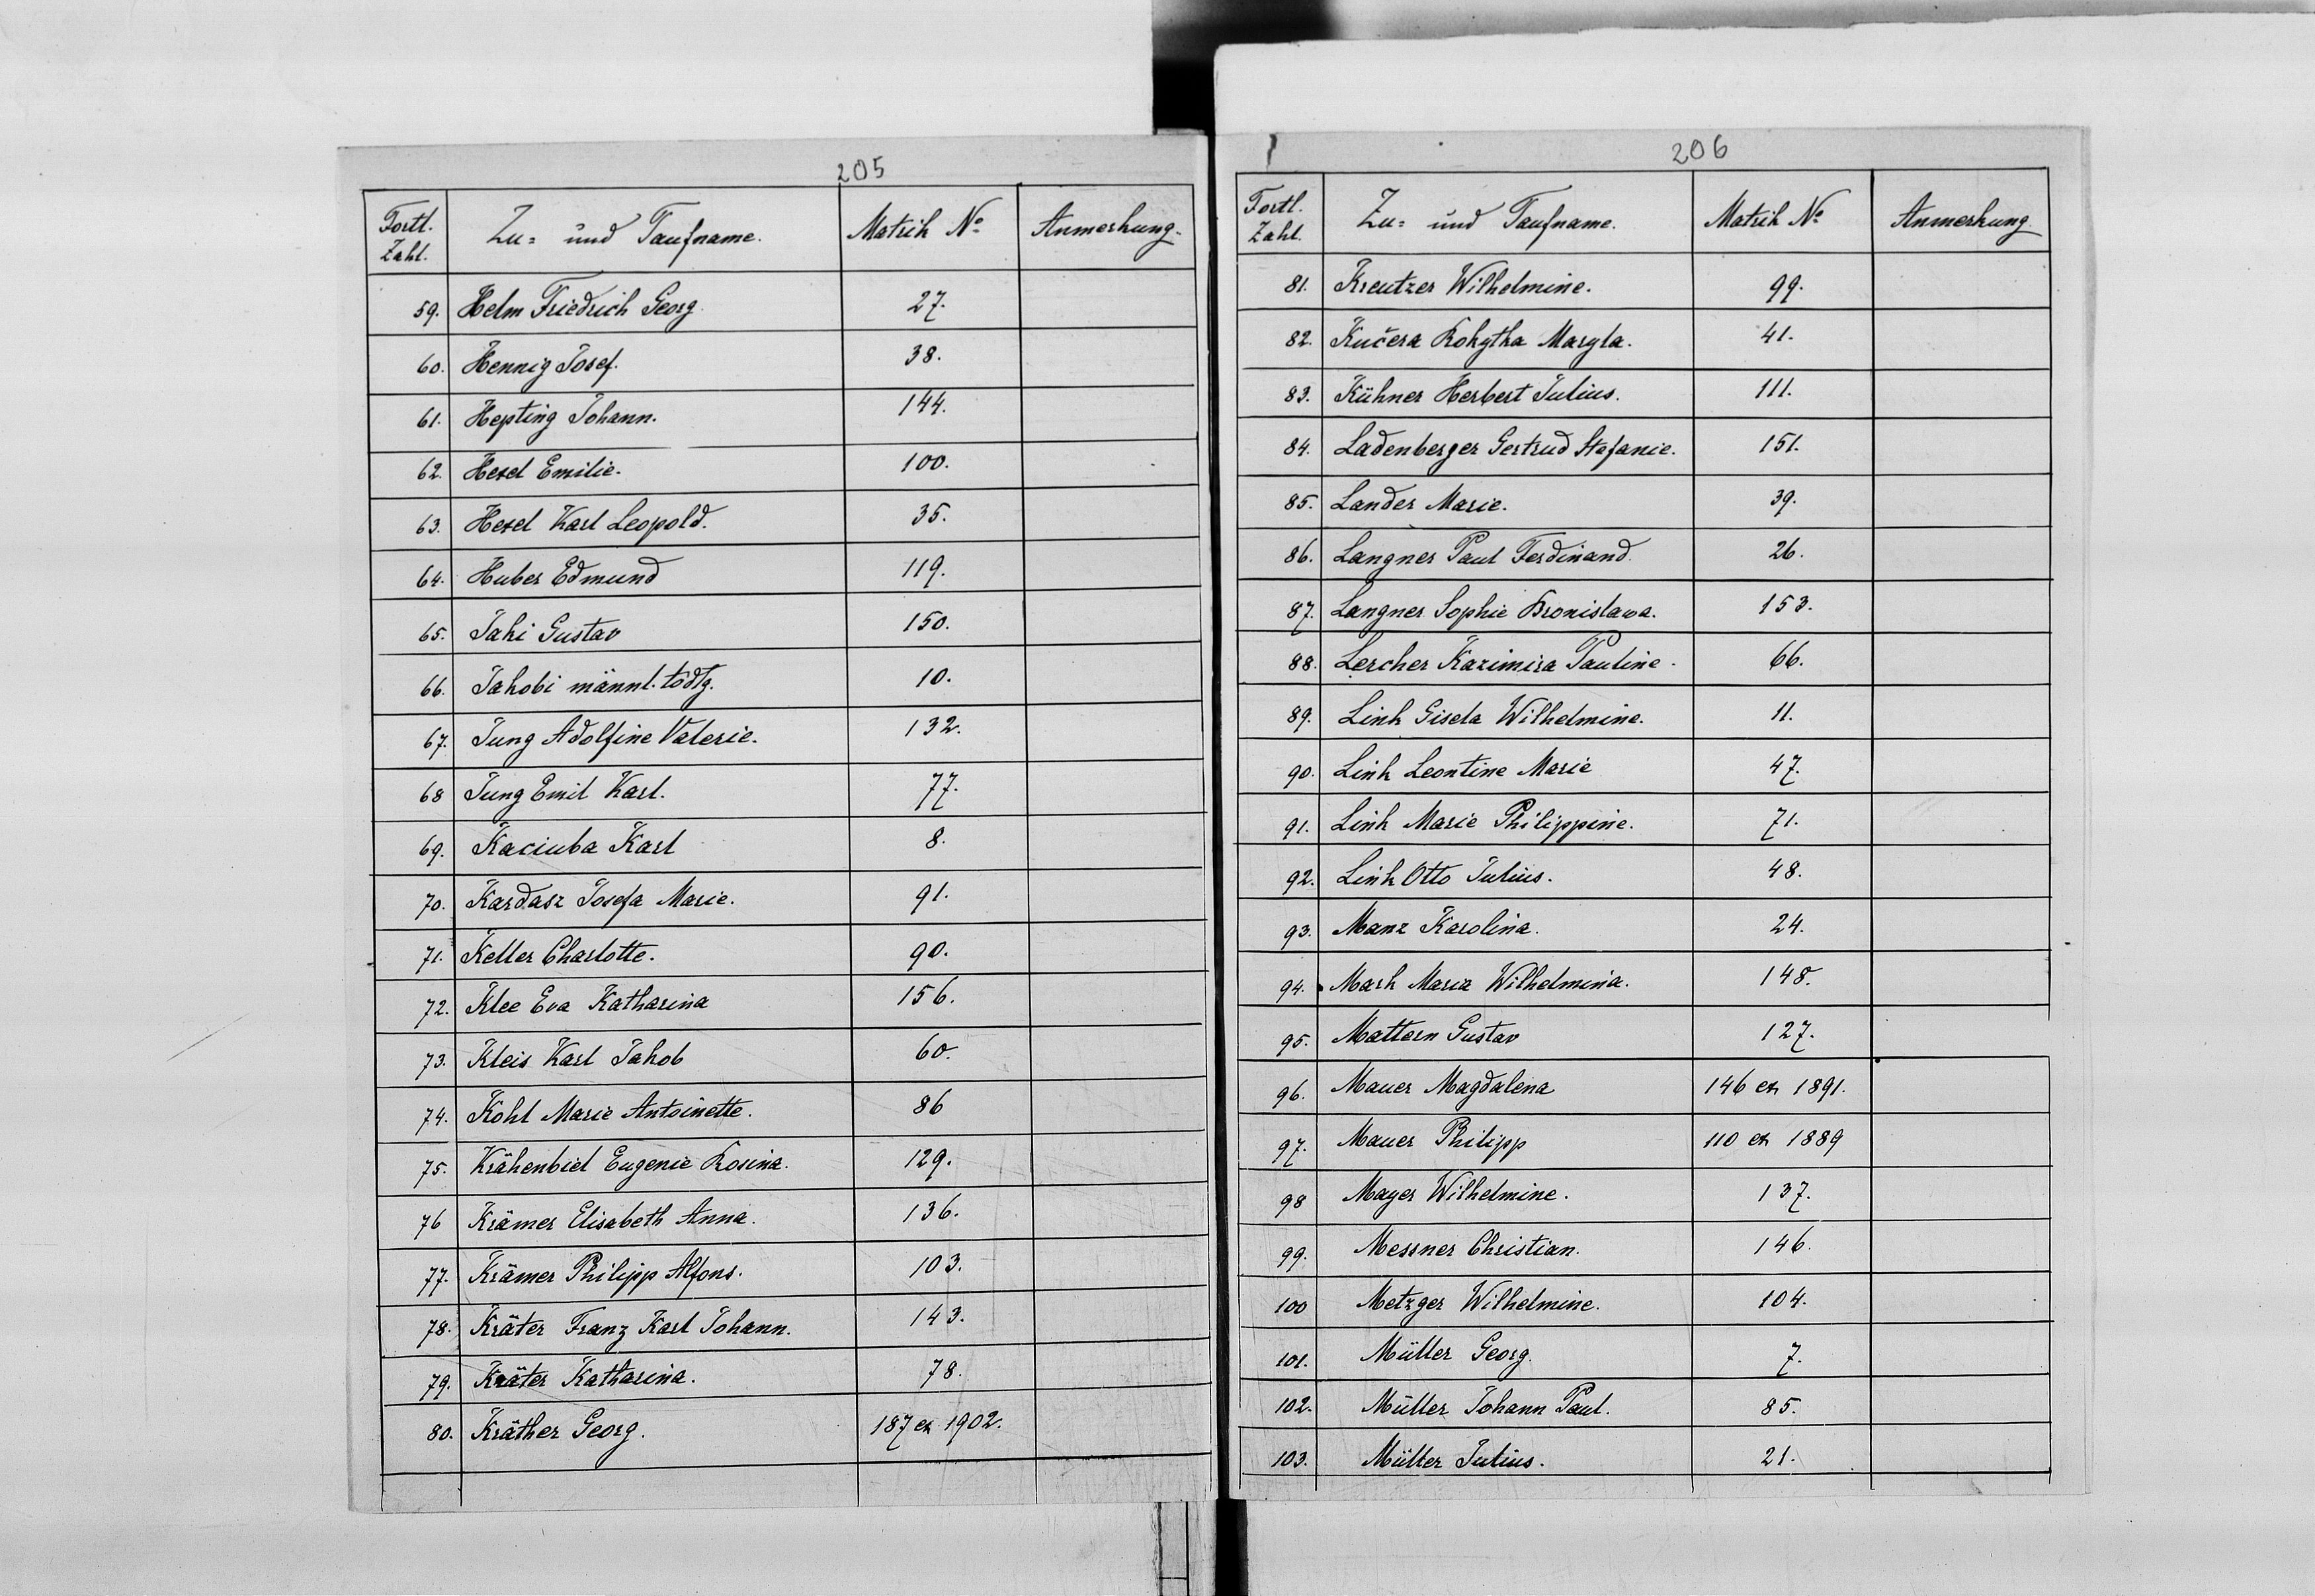 205
Fortl. Zahl. Zu= und Taufname. Matrik No Anmerkung.
59. Helm Friedrich Georg. 27.
60. Hennig Josef. 38.
61. Hepting Johann. 144.
62. Hexel Emilie. 100.
63. Hexel Karl Leopold. 35.
64. Huber Edmund 119.
65. Jaki Gustav 150.
66. Jakobi männl. todtg. 10.
67. Jung Adolfine Valerie. 132.
68 Jung Emil Karl. 77.
69. Kaciuba Karl 8.
70. Kardasz Josefa Marie. 91.
71. Keller Charlotte. 90.
72. Klee Eva Katharina 156.
73. Kleis Karl Jakob 60.
74. Kohl Marie Antoinette. 86
75. Krähenbiel Eugenie Rosina. 129.
76 Krämer Elisabeth Anna. 136.
77. Krämer Philipp Alfons. 103.
78. Kräter Franz Karl Johann. 143.
79. Kräter Katharina. 78.
80. Kräther Georg. 187 ex 1902.
206
Fortl. Zahl. Zu= und Taufname. Matrik No Anmerkung.
81. Kreutzer Wilhelmine. 99.
82. Kučera Rokytka Maryla. 41.
83. Kühner Herbert Julius. 111.
84. Ladenberger Gertrud Stefanie. 151.
85. Lander Marie. 39.
86. Langner Paul Ferdinand. 26.
87. Langner Sophie Bronislawa. 153.
88. Lercher Kazimira Pauline. 66.
89. Link Gisela Wilhelmine. 11.
90. Link Leontine Marie 47.
91. Link Marie Philippine. 71.
92. Link Otto Julius. 48.
93. Manz Karolina. 24.
94. Mark Maria Wilhelmina. 148.
95. Mattern Gustav 127.
96. Mauer Magdalena 146 ex 1891.
97. Mauer Philipp 110 ex 1889
98 Mayer Wilhelmine. 137.
99. Messner Christian. 146.
100 Metzger Wilhelmine. 104.
101. Müller Georg. 7.
102. Müller Johann Paul. 85.
103. Müller Julius. 21.